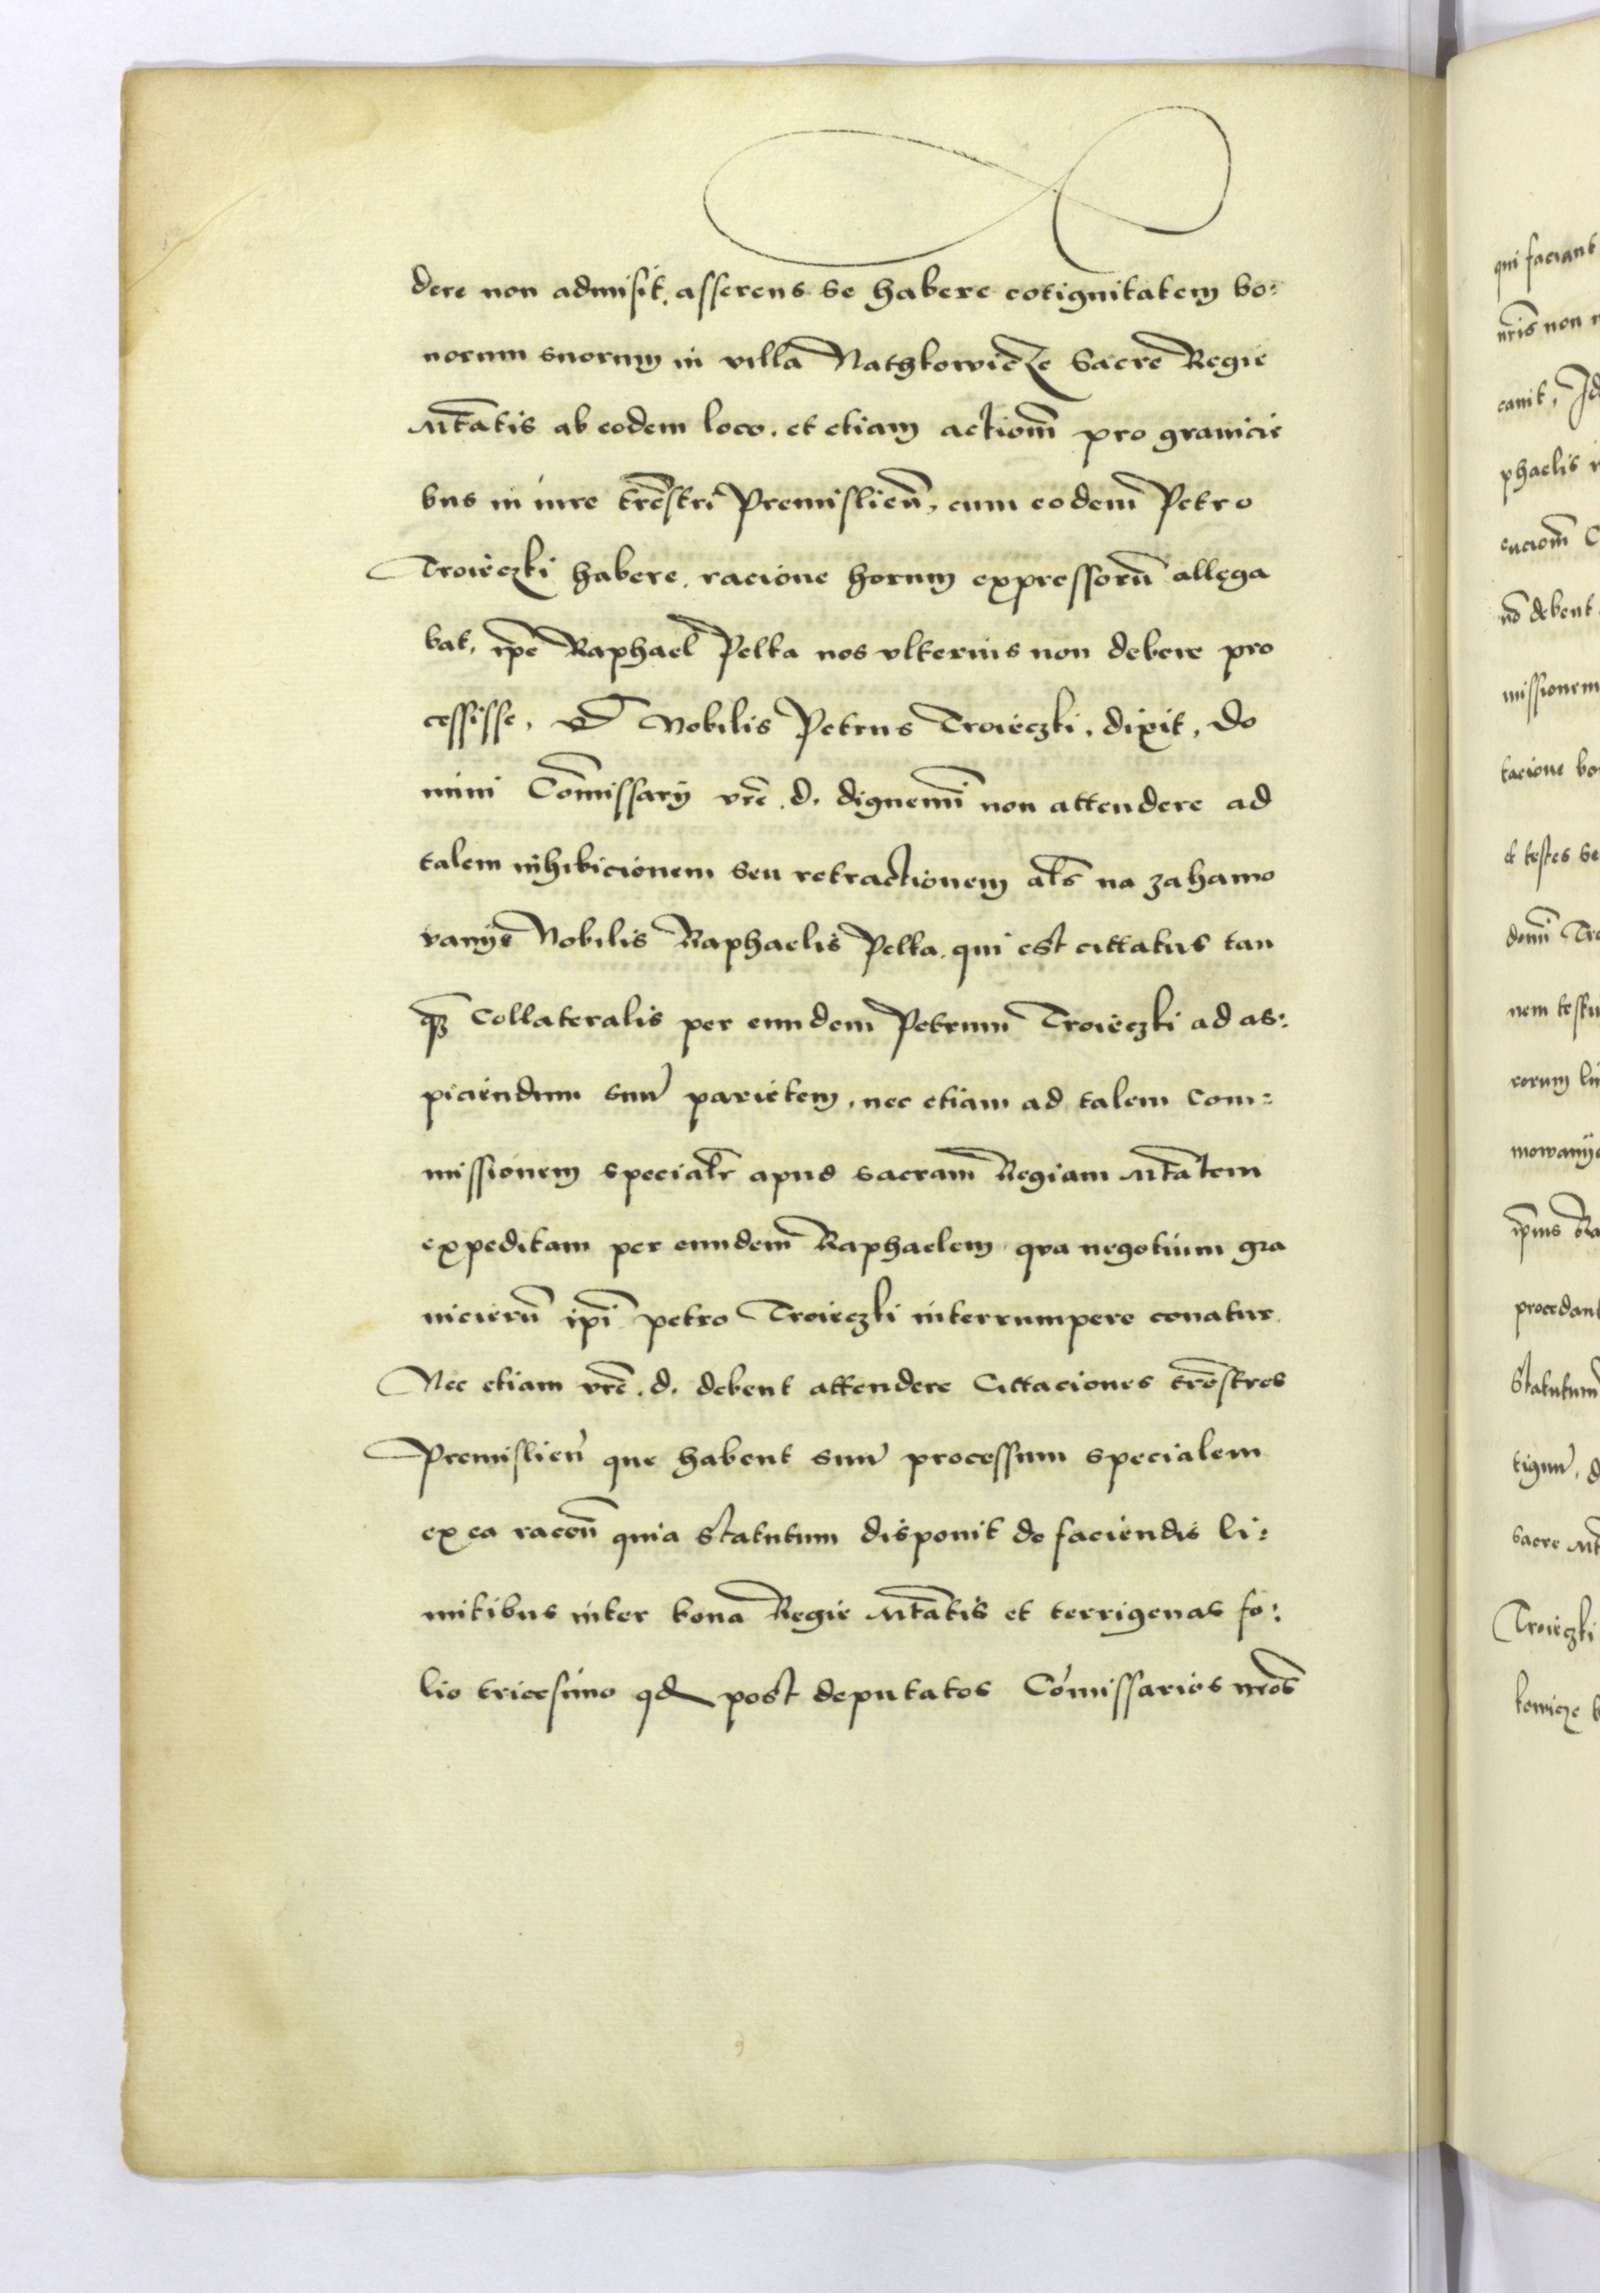 dere non admisit, asserens se habere cotiguitatem bo:
norum suorum in villa Nathkowicze Sacre Regie
Mtatis ab eodem loco. et etiam actiom̄ pro granicie
bus in iure trestri Premislien̄, cum eodem Petro
Troieczki habere, racione horum expressorū allega
bat, ipe Raphael Pelka nos vlterius non debere pro
cessisse, Nobilis Petrus Troieczki, dixit, Do
mini Com̄issarij vrē. d. dignemī non attendere ad
talem inhibicionem seu retractionem als na zahamo
vanye Nobilis Raphaelis Pelka. qui est cittatus tan
qz Collateralis per eundem Petrum Troieczki ad as:
piciendum suū parietem, nec etiam ad talem Com:
missionem specialr apud sacram Regiam Mtatem
expeditam per eundem Raphaelem qua negotium gra
nicierū ipī petro Troieczki interrumpere conatur
Nec etiam vrē. d. debent attendere Cittaciones trēstres
Premislien̄ que habent suū processum specialem
ex ea racoē quia Statutum disponit de faciendis li:
mitibus inter bona Regie Mtatis et terrigenas fo:
lio tricesimo qd post deputatos Com̄issarios nr̄os
qui faciant
nr̄is non
canit, Id
phaelis
cuciom̄
nō debent
missionem
tacione bo
et testes se
domī Tro
nem testiu
rorum
mowanye
ipius Ra
procedant
Statutum
tiguū,
sacre Mt
Troieczki
kowicze